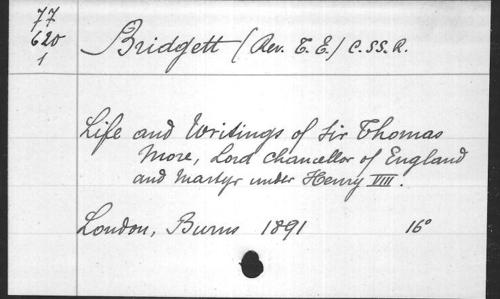 77
620
1
Bridgett (Rev. T. E.) C.SS.R.
Life and Writings of Sir Thomas
More, Lord Chancellor of England
and Martyr under Henry VIII.
London, Burns 1891 16°